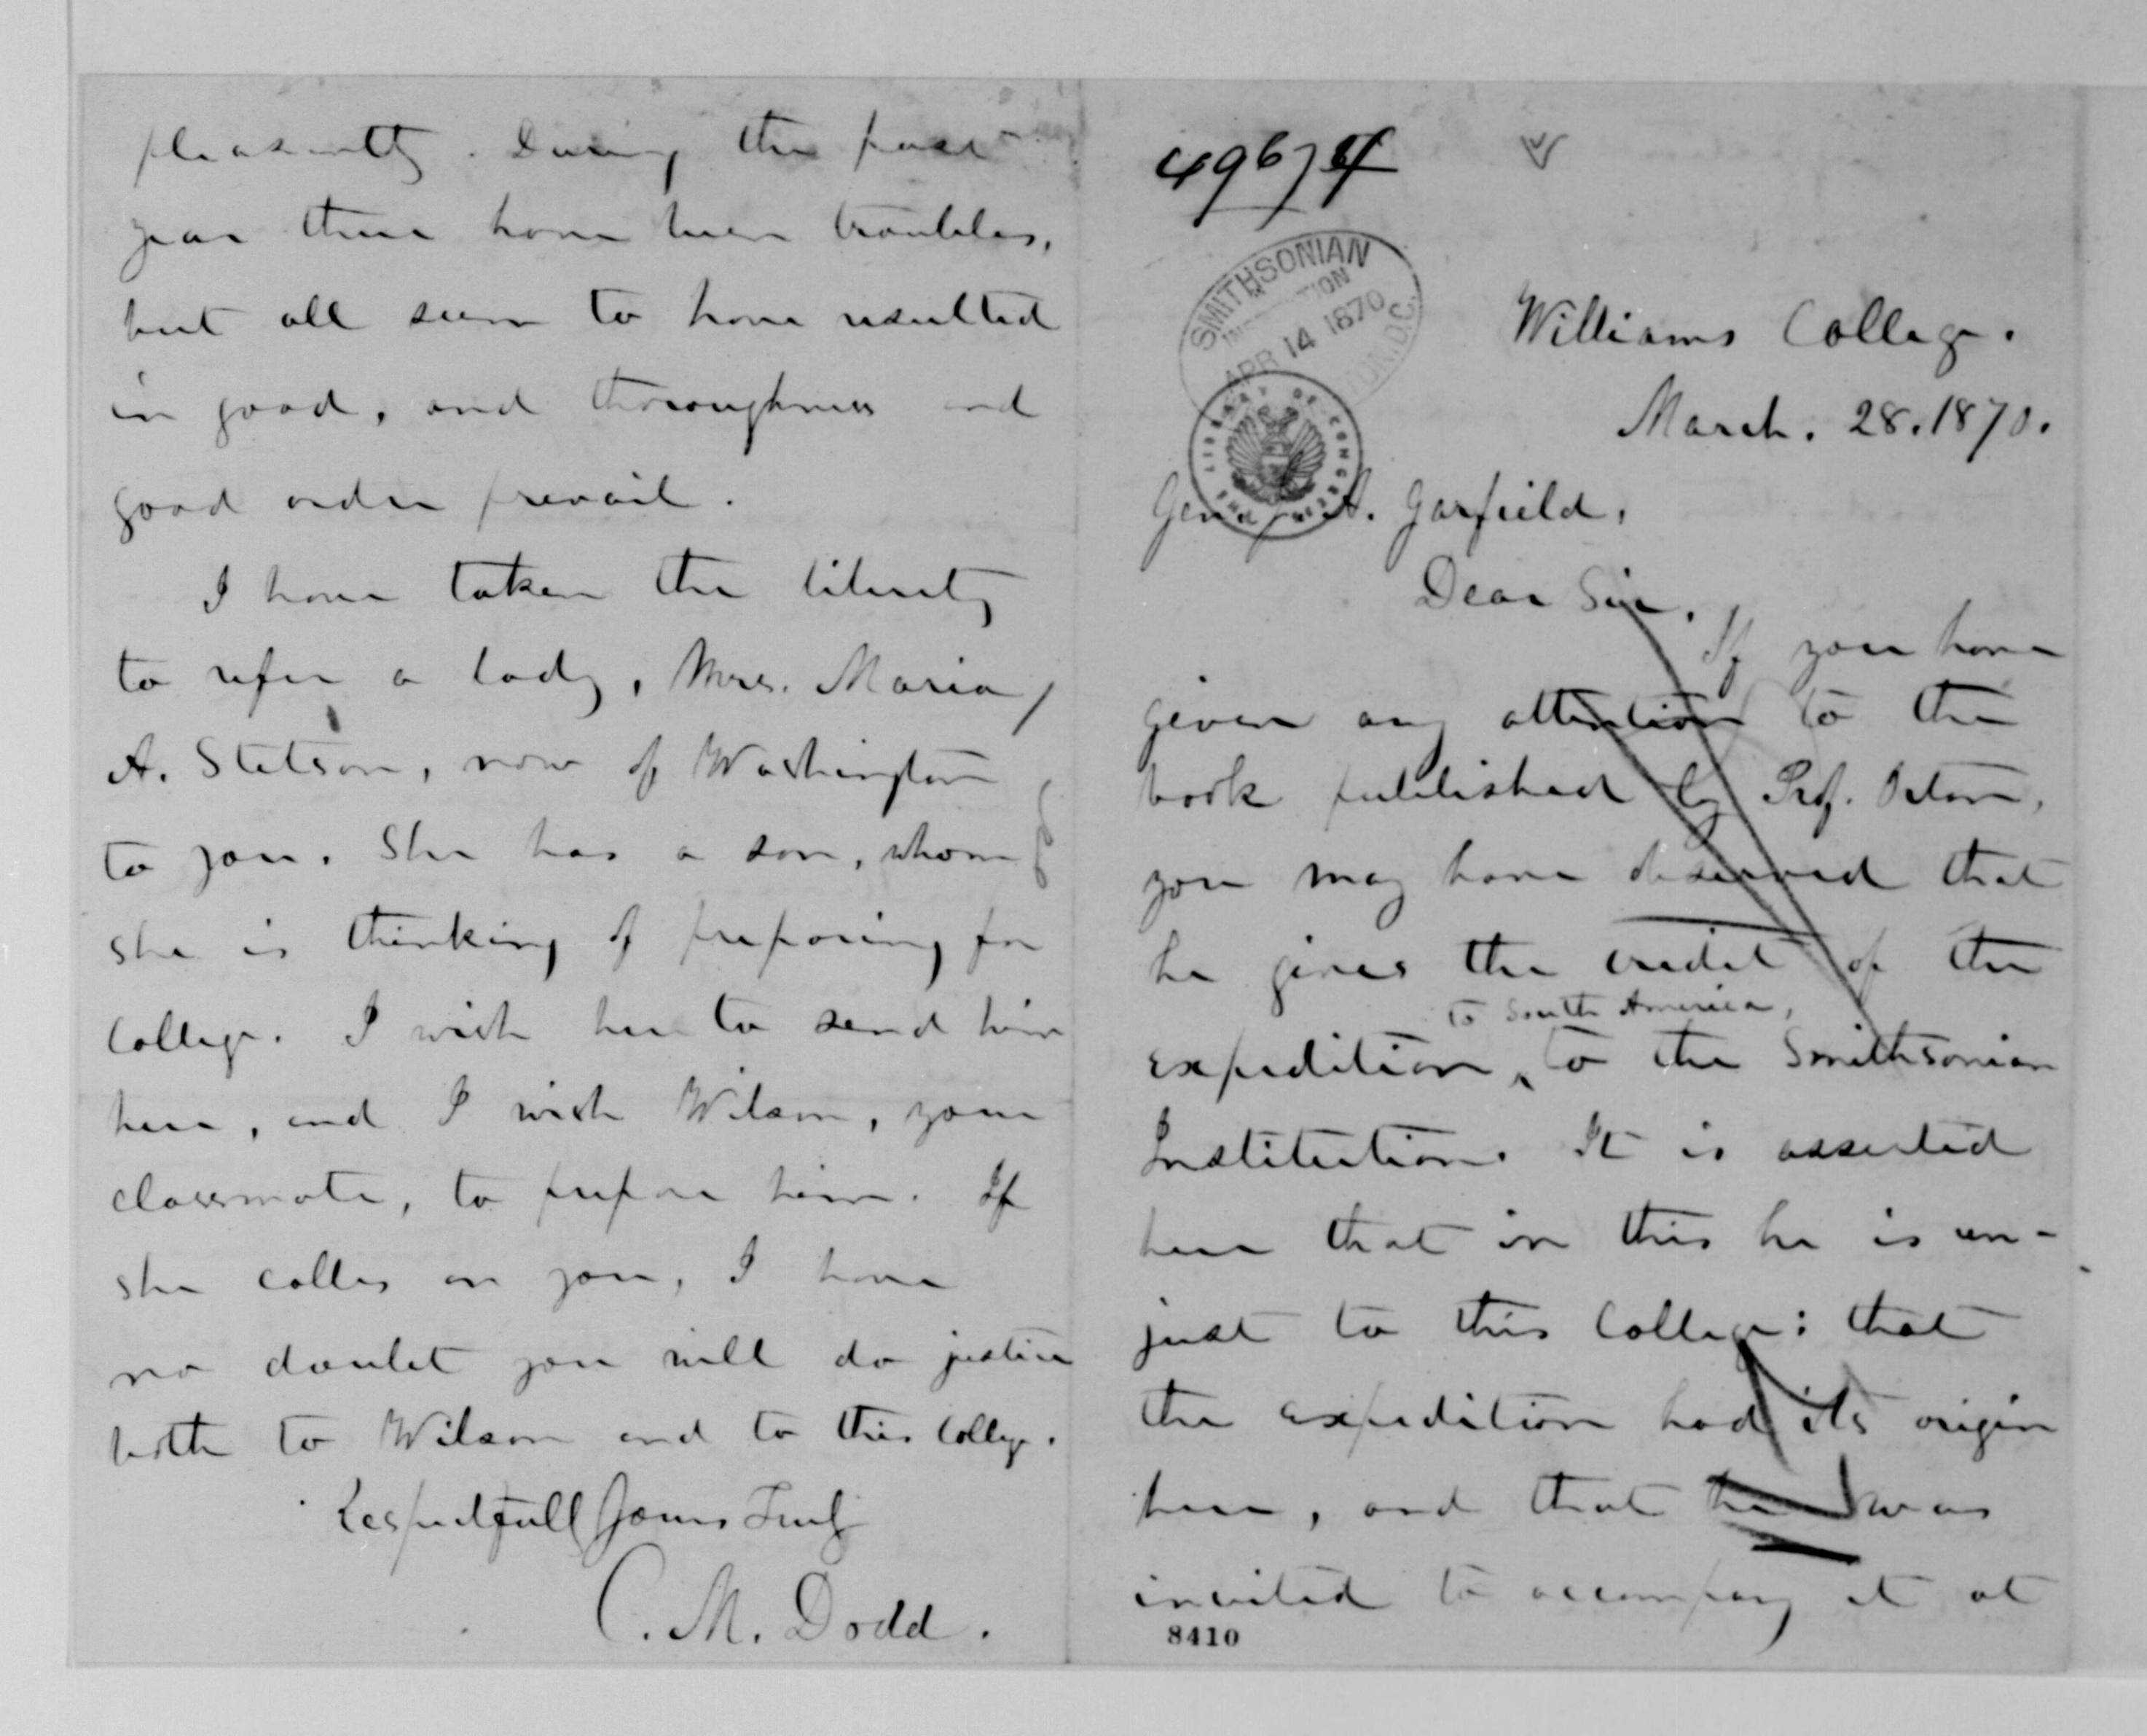 pleasantly. During the past
year there have been troubles,
but all seem to have resulted
in good, and thoroughness and
good order prevail.
I have taken the liberty
to refer a lady, Mrs. Maria
A. Stetson, now of Washington
to you. She has a son, whom
she is thinking of preparing for
College. I wish her to send him
here, and I wish Wilson, your
classmate, to prepare him. If
she calls on you, I have
no doubt you will do justice
both to Wilson and to this College.
Respectfull Yours Truly
C. M. Dodd.
SMITHSONIAN
APR 14 1870
THE LIBRARY OF CONGRESS
Williams College.
March. 28. 1870.
Gen J. A. Garfield,
Dear Sir.
If you have
given any attention to the
book published by Prof. Orton,
you may have observed that
he gives the credit of the
to South America,
expedition, to the Smithsonian
Institution. It is asserted
here that in this he is un-
just to this College: that
the expedition had its origin
here, and that he was
invited to accompany it at
8410